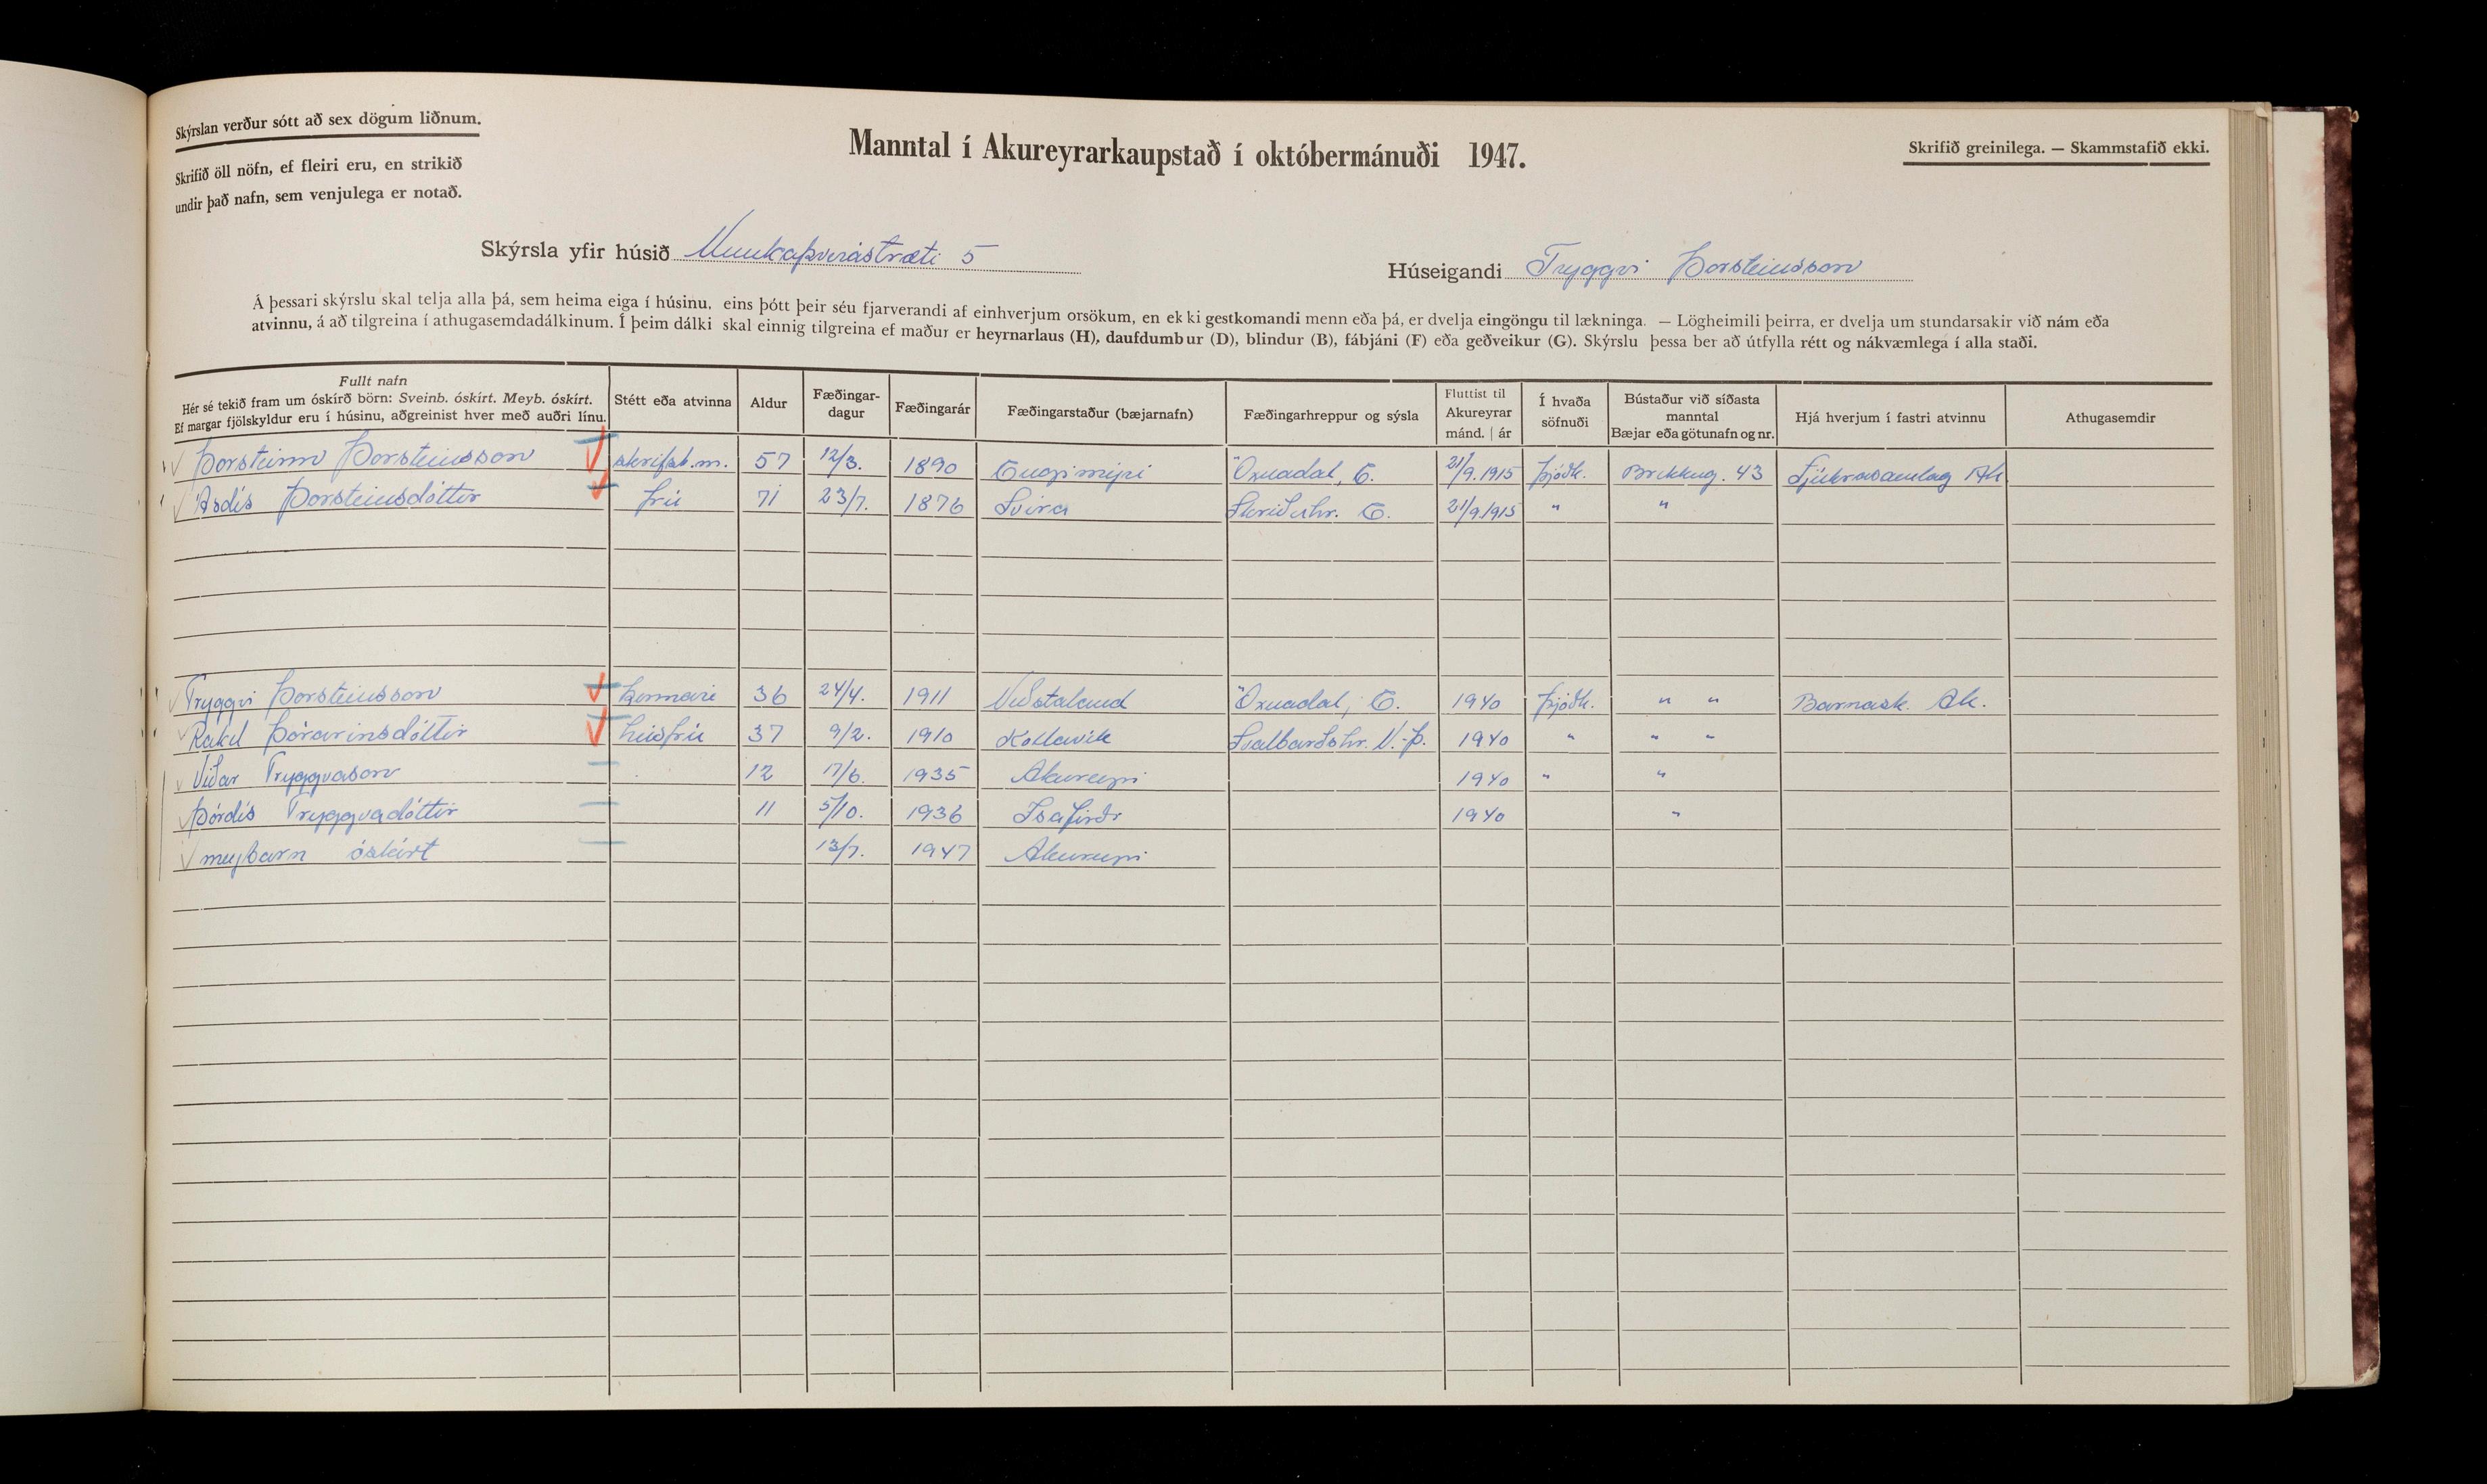 Skýrslan verður sótt að sex dögum liðnum.
Skrifið öll nöfn, ef fleiri eru, en strikið
undir það nafn, sem venjulega er notað.
Manntal í Akureyrarkaupstað í októbermánuði 1947.
Skrifið greinilega. — Skammstafið ekki.
Skýrsla yfir húsið Munkaþverástræti 5
Húseigandi Tryggvi Þorsteinsson
Á þessari skýrslu skal telja alla þá, sem heima eiga í húsinu, eins þótt þeir séu fjarverandi af einhverjum orsökum, en ekki gestkomandi menn eða þá, er dvelja eingöngu til lækninga. — Lögheimili þeirra, er dvelja um stundarsakir við nám eða
atvinnu, á að tilgreina í athugasemdadálkinum. Í þeim dálki skal einnig tilgreina ef maður er heyrnarlaus (H), daufdumbur (D), blindur (B), fábjáni (F) eða geðveikur (G). Skýrslu þessa ber að útfylla rétt og nákvæmlega í alla staði.
Fullt nafn
Hér sé tekið fram um óskírð börn: Sveinb. óskírt. Meyb. óskírt.
Ef margar fjölskyldur eru í húsinu, aðgreinist hver með auðri línu.
Stétt eða atvinna
Aldur
Fæðingar-
dagur
Fæðingarár
Fæðingarstaður (bæjarnafn)
Fæðingarhreppur og sýsla
Fluttist til
Akureyrar
mánd. | ár
Í hvaða
söfnuði
Bústaður við síðasta
manntal
Bæjar eða götunafn og nr.
Hjá hverjum í fastri atvinnu
Athugasemdir
Þorsteinn Þorsteinsson skrifst.m. 57 12/3. 1890 Engimýri Öxnadal, E. 21/9.1915 þjóðk. Brekkug. 43 Sjúkrasamlag Ak
Ásdís Þorsteinsdóttir frú 71 23/7. 1876 Skriðuhr. E. 21/9.1915 " "
Tryggvi Þorsteinsson kennari 36 24/4. 1911 Öxnadal, E. 1940 þjóðk. " " Barnask. Ak.
Rakel Þórarinsdóttir húsfrú 37 9/2. 1910 Kollavík Svalbarðshr. N.-Þ. 1940 " " "
Viðar Tryggvason 12 17/6. 1935 Akureyri 1940 " "
Þórdís Tryggvadóttir 11 5/10. 1936 Ísafirði 1940 "
meybarn óskírt 13/7. 1947 Akureyri